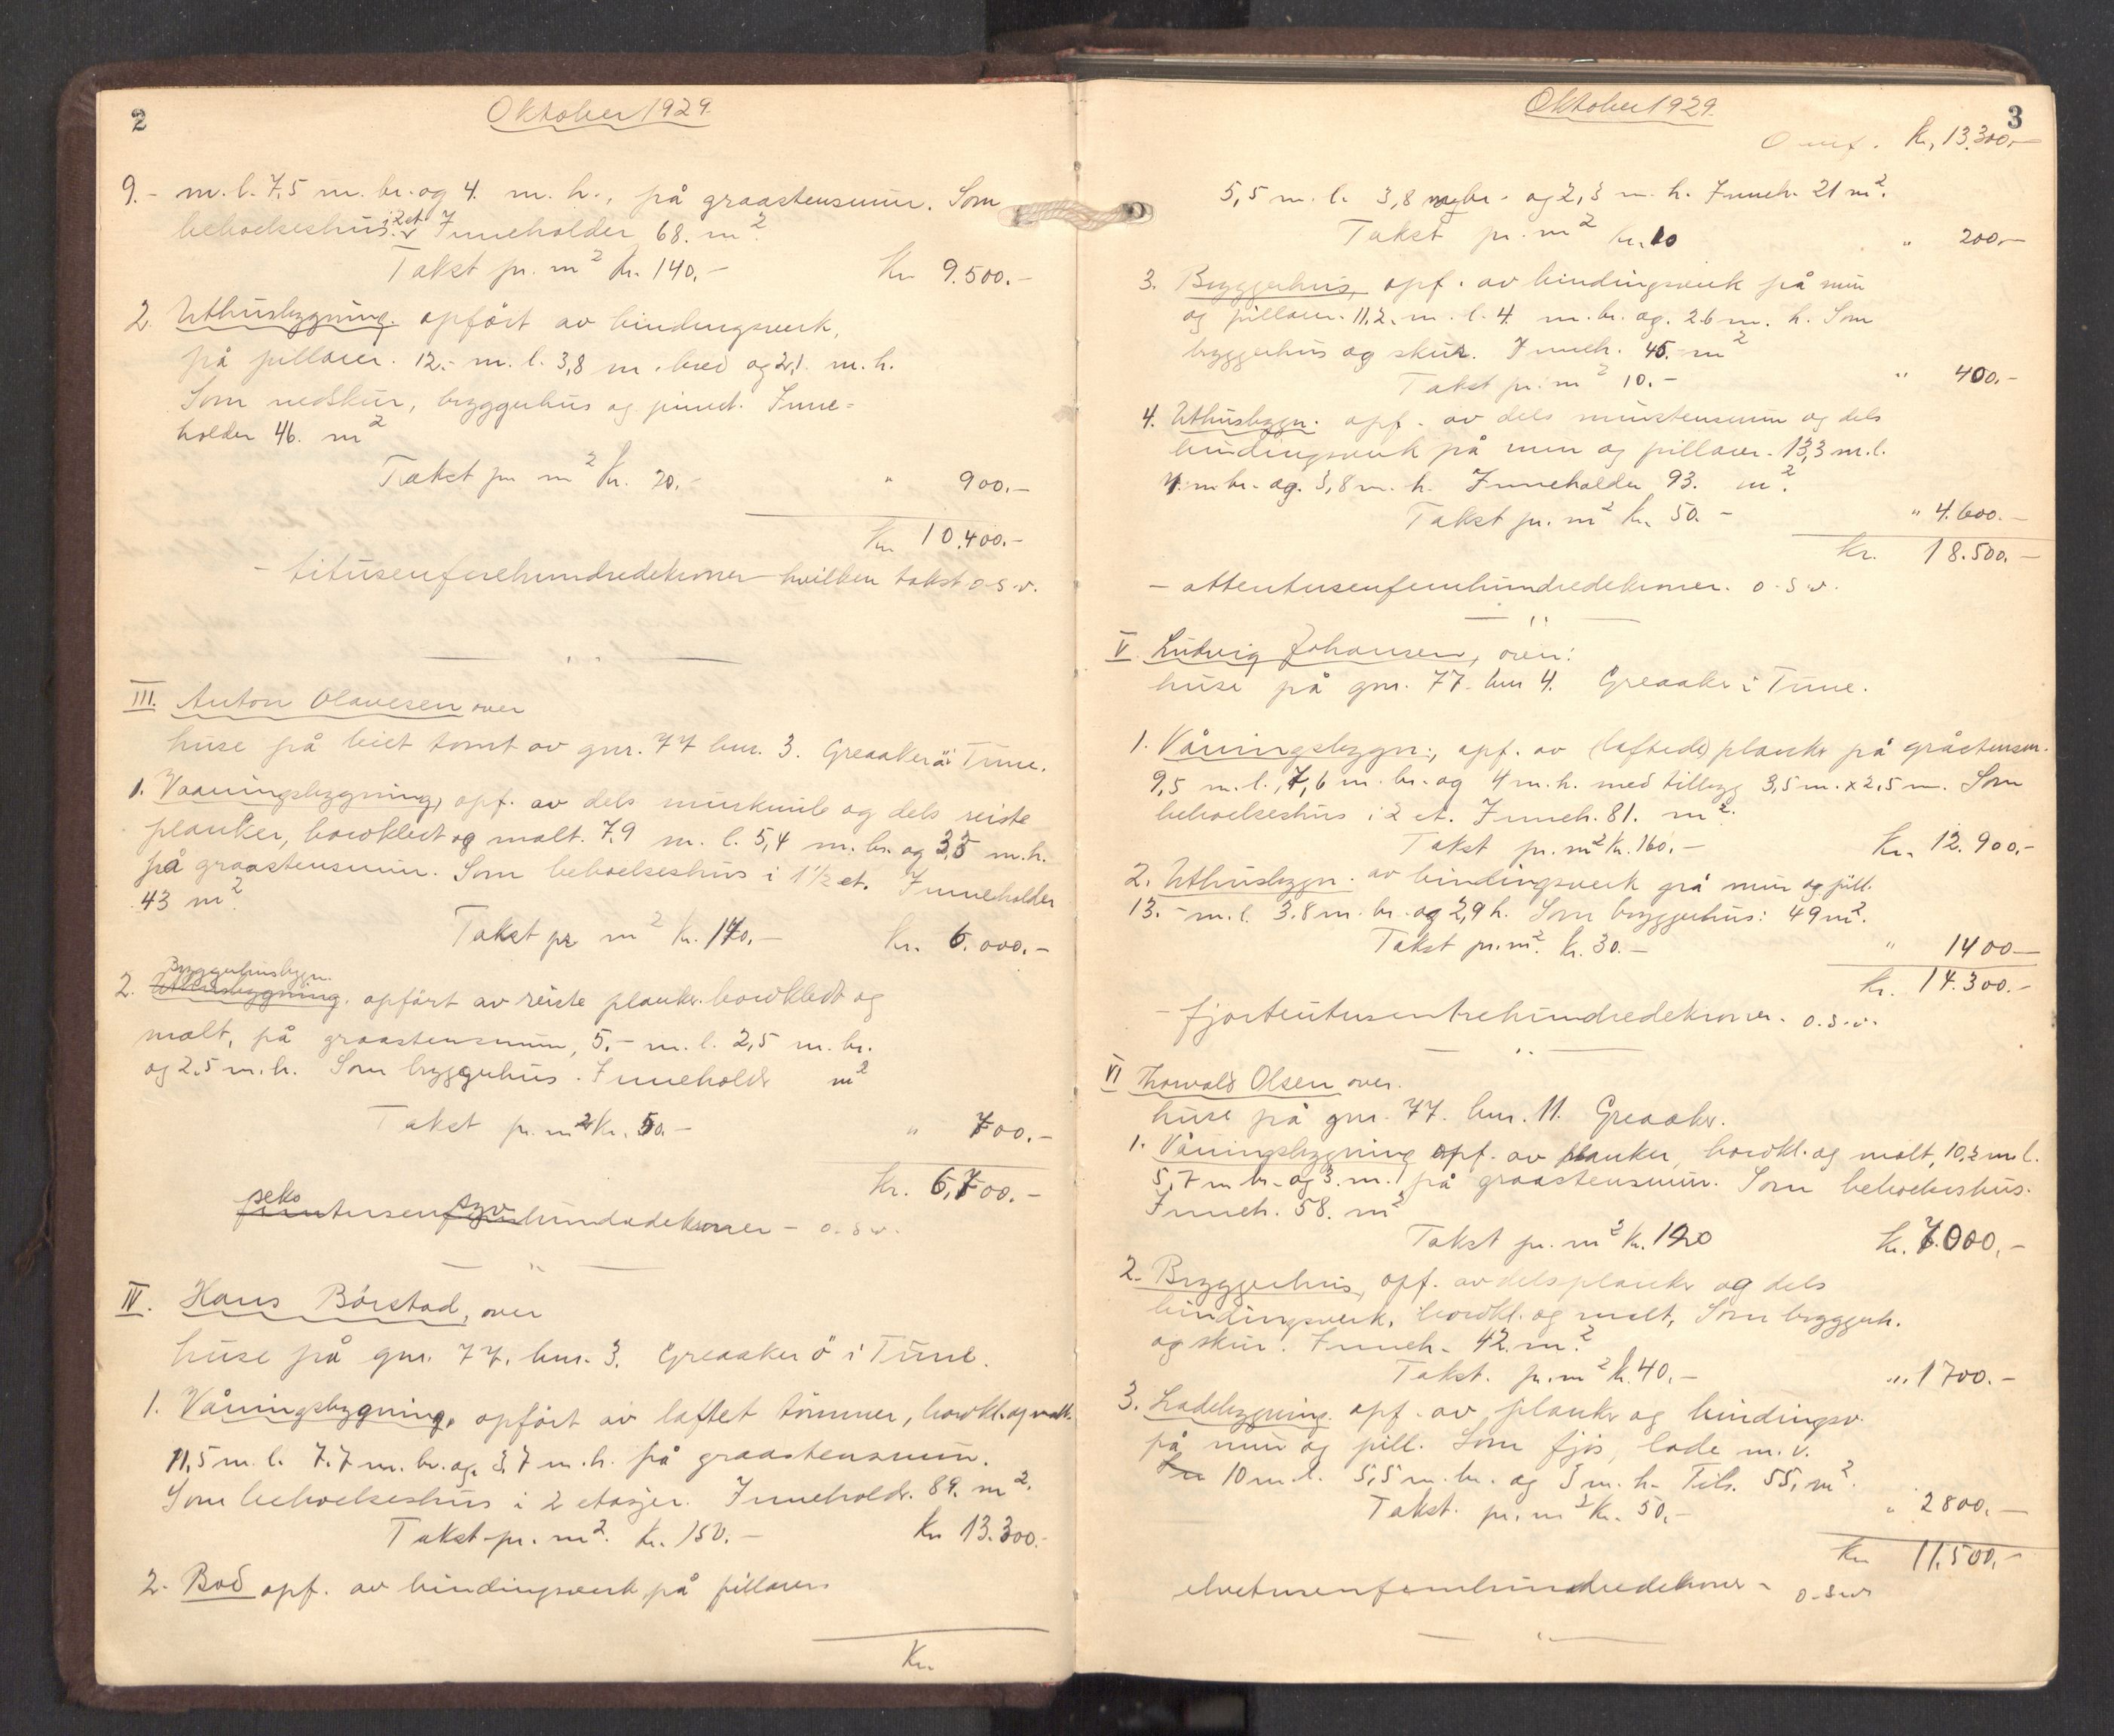 2
Oktober 1929.
9.- m. l. 7,5 m. br. og 4. m. h., på graastensmur. Som
beboelseshus i 2 et. Inneholder 68. m².
Takst pr. m² kr. 140.- Kr. 9.500.-
2. Uthusbygning. opført av bindingsverk,
på pillarer. 12.- m. l. 3,8 m. bred og 2,1. m. h.
Som vedskur, bryggerhus og privet. Inne=
holder 46. m²
Takst pr. m² kr. 20.- " 900.-
Kr. 10.400.-
- titusenfirehundredekroner hvilken takst o.s.v.
III. Anton Olavesen over
huse på leiet tomt av gnr. 77 bnr. 3. Greaaker ö i Tune.
1. Vaaningsbygning, opf. av dels murkuile og dels reiste
planker, bordkledt og malt. 7,9 m. l. 5,4 m. br. og 3,5 m. h.
på graastensmur. Som beboelseshus i 1½ et. Inneholder
43 m².
Takst pr m² kr. 140.- Kr. 6.000.-
Bryggerhusbygn.
2. Uthusbygning. opført av reiste planker. bordkledt og
malt, på graastensmur, 5.- m. l. 2,5 m. br.
og 2.5 m. h. Som bryggerhus. Inneholdr m²
Takst pr. m² kr. 50.- " 700.-
Kr. 6.700.-
seks syv
femtusenfemhundredekroner - o.s.v.
IV. Hans Börstad, over
huse på gnr. 77. bnr. 3. Greaaker ö i Tune.
1. Våningsbygning, opført av laftet tömmer, bordkl. og malt.
11,5 m. l. 7.7 m. br. og 3,7 m. h. på graastensmur.
Som beboelseshus i 2 etasjer. Inneholdr. 89. m².
Takst pr. m². kr. 150.- Kr 13.300.-
2. Bod opf. av bindingsverk på pillarer
Kr.
3
Oktober 1929.
Overf. Kr. 13.300,-
5,5 m. l. 3,8 m br. og 2,3 m. h. Inneh. 21 m².
Takst pr. m² kr. 10 " 200.-
3. Bryggerhus, opf. av bindingsverk på mur
og pillarer. 11,2. m. l. 4. m. br. og. 2.6 m. h. Som
bryggerhus og skur. Inneh. 45. m²
Takst pr. m² 10.- " 400.-
4. Uthusbygn. opf. av dels murstensmur og dels
bindingsverk på mur og pillarer. 13,3 m. l.
7. m br. og. 3,8 m. h. Inneholder 93. m².
Takst pr. m² kr. 50.- " 4.600.-
Kr. 18.500.-
- attentusenfemhundredekroner. o.s.v.
V Ludvig Johansen, over:
huse på gnr. 77. bnr 4. Greaaker i Tune.
1. Våningsbygn., opf. av (laftede) planker på gråstensm.
9,5 m. l., 7,6 m. br. og 4 m. h. med tilbygg 3,5 m. x 2,5 m. Som
beboelseshus i 2 et. Inneh. 81. m².
Takst pr. m² kr. 160.- Kr. 12.900.-
2. Uthusbygn. av bindingsverk på mur og pill.
13.- m. l. 3.8 m. br. og 2,9 h. Som bryggerhus: 49 m².
Takst pr. m². kr. 30.- " 1400-
Kr. 14.300.-
- fjortentusentrehundredekroner. o.s.v.
VI Thorvald Olsen over.
huse på gnr. 77. bnr. 11. Greaaker.
1. Våningsbygning opf. av planker, bordkl. og malt, 10,2 m l.
5,7 m br. og 3. m. l på graastensmur. Som beboelseshus.
Inneh. 58. m²
Takst pr. m² kr. 120 Kr. 7.000,-
2. Bryggerhus, opf. av dels planker og dels
bindingsverk, bordkl. og malt, Som bryggerh.
og skur. Inneh. 42. m².
Takst. pr. m² kr. 40.- " 1700.-
3. Ladebygning. opf. av planker og bindingsv.
på mur og pill. Som fjøs, lade m. v.
10 m. l. 5,5 m. br. og 5 m. h. Tils. 55, m².
Takst. pr. m² kr. 50.- " 2800.-
Kr 11.500,-
elvetusenfemhundredekroner - o.s.v.